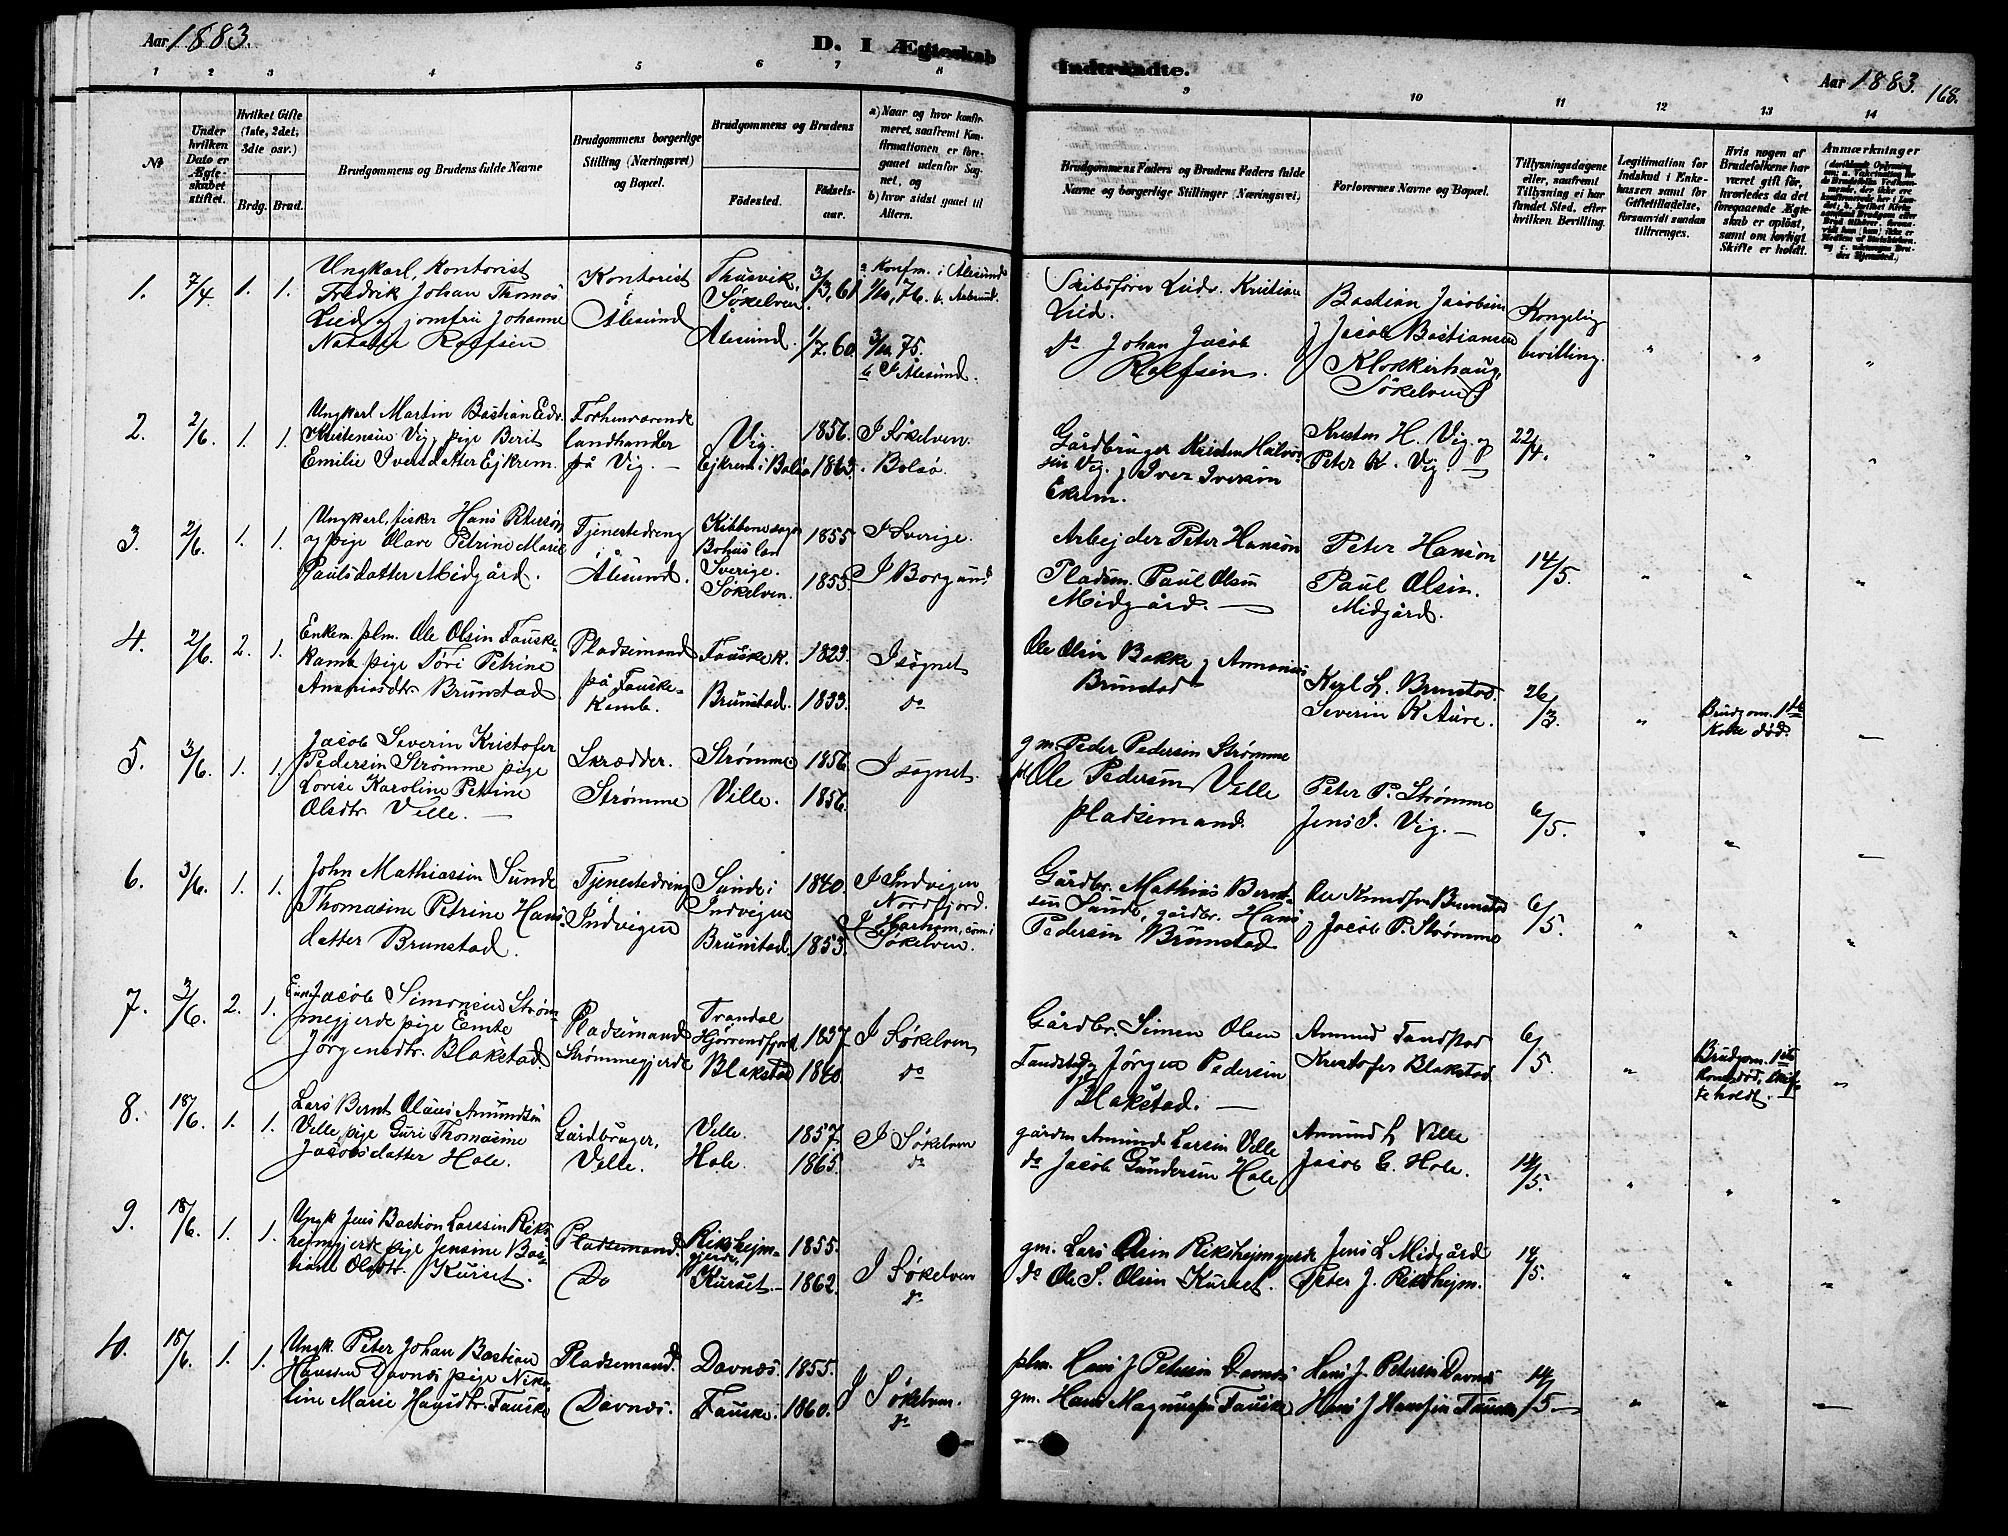 Aar 1883.
D. I Ægteskab
Indtraadte.
Aar 1883.
168.
1 2 3 4 5 6 7 8
9 10 11 12 13 14
No
Under hvilken Dato er Ægteskabet stiftet.
Hvilket Gifte (1ste, 2det, 3die osv.)
Brdg. Brud.
Brudgommens og Brudens fulde Navne
Brudgommens borgerlige Stilling (Næringsvei) og Bopæl.
Brudgommens og Brudens
Fødested.
Fødselsaar.
a) Naar og hvor konfirmeret, saafremt Konfirmationen er foregaaet udenfor Sognet, og
b) hvor sidst gaaet til Alters.
Brudgommens Faders og Brudens Faders fulde Navne og borgerlige Stillinger (Næringsvei)
Forlovernes Navne og Bopæl.
Tillysningsdagene eller, saafremt Tillysning ei har fundet Sted, efter hvilken Bevilling.
Legitimation for Indskud i Enkekassen samt for Giftetilladelse, forsaavidt saadan tiltrænges.
Hvis nogen af Brudefolkene har været gift før, hvorledes da det foregaaende Ægteskab er opløst, samt om lovligt Skifte er holdt.
Anmærkninger
1. 7/4 1. 1.
Ungkarl, Kontorist
Fredrik Johan Thomas
Lied og jomfru Johanne
Natalie Rolfsen
Kontorist
Ålesund
Thusvik,
Søkelven.
Ålesund.
3/3, 61
1/7. 60.
a Konfm. i Ålesund
1/10, 76. b. Aalesund.
3/10 75.
b I Ålesund.
Skibsfører Ludv. Kristian
Lied.
do Johan Jacob
Rolfsen.
Bastian Jacobsen
Jacob Bastiansen
Klokkerhaug,
Søkelven
Kongelig
bevilling.
" " "
2. 2/6. 1. 1.
Ungkarl Martin Bastian Edv.
Kristensen Vig, pige Berit
Emilie Iversdatter Ejkrem.
Forhenværende
landhandler
på Vig. —
Vig.
Ejkrem i Bolsø
1856.
1863.
I Søkelven.
Bolsø.
Gårdbruger Kristen Halvor-
sen Vig. Iver Iversen
Ekrem.
Kristen H. Vig. og
Peter K. Vig.
22/4.
" " "
3. 2/6. 1. 1.
Ungkarl, fisker Hans Petersøn
og pige Olave Petrine Marie
Paulsdatter Midgård.
Tjenestedreng
i
Ålesund.
Bohus len
Sverige.
Søkelven.
1855
1855.
I Sverige.
I Borgund
Arbejder Peter Hansøn
Pladsm. Paul Olsen
Midgård. —
Peter Hansøn
Paul Olsen.
Midgård.
14/5.
" " "
4. 2/6. 2. 1.
Enkem. plm. Ole Olsen Fauske-
kamb pige Tøri Petrine
Ananiasdtr. Brunstad
Pladsemand
på Fauske-
kamb.
Fauske k.
Brunstad.
1823.
1833.
I sognet
do
Ole Olsen Bakke Annanias
Brunstad
Brunstad.
Severin K Aure.
26/3.
"
Brudgom. 1ste
Kone død.
—
5. 3/6. 1. 1.
Jacob Severin Kristofer
Pedersen Strømme pige
Lovise Karoline Petrine
Olsdtr. Velle. —
Skrædder.
Strømme
Strømme
Velle.
1856.
1856.
I sognet.
gm. Peder Pedersen Strømme
Ole Pedersen Velle
pladsemand.
Peter P. Strømme
Jens I. Vig. —
6/5.
" " —
6. 3/6. 1. 1.
John Mathiassen Sunde
Thomasine Petrine Hans
datter Brunstad.
Tjenestedreng
Indvigen
Sunde i
Indvigen
Brunstad.
1840.
1853.
I Indvigen
Nordfjord.
I Harham, com. i
Søkelven.
Gårdbr. Mathias Bernt-
sen Sunde, gårdbr. Hans
Pedersen Brunstad
Ole Knudsen Brunstad
Jacob P. Strømme
6/5.
" " "
7. 3/6. 2. 1.
Enkem. Jacob Simonsen Strøm-
megjerde pige Emte
Jørgensdtr. Blakstad.
Pladsemand
Strømmegjerde
Trandal
Hjørrendfjord
Blakstad
1837
1840.
I Søkelven
do
Gårdbr. Simen Olsen
Tandstad Jørgen Pedersen
Blakstad. —
Amund Tandstad
Kristofer Blakstad
6/5.
"
Brudgom. 1ste
Kone død, skif-
te holdt.
"
8. 18/6. 1. 1.
Lars Bernt Olaus Amundsen
Velle, pige Guri Thomasine
Jacobsdatter Hole.
Gårdbruger,
Velle.
Velle.
Hole.
1857
1865.
I Søkelven
do
gårdm Amund Larsen Velle
do Jacob Gundersen Hole
Amund L Velle
Jacob G. Hole.
14/5.
" " "
9. 18/6. 1. 1.
Ungk Jens Bastian Larssen Riks-
hejmgjerde pige Jensine Bas-
tiane Olsdtr. Kurset.
Pladsemand.
Do
Rikshejm-
gjerde,
Kurset. —
1855.
1862.
I Søkelven
do
gm. Lars Olsen Rikshejmgjerde
do Ole S. Olsen Kurset.
Jens L Midgård
Peter J. Rikshejm.
14/5.
" " "
10. 18/6. 1. 1.
Ungk. Peter Johan Bastian
Hansen Davnes pige Niko-
line Marie Hansdtr. Fauske
Pladsemand.
Davnes.
Davnes.
Fauske.
1855.
1860.
I Søkelven.
do
plm. Hans J Petersen Davnes
gm. Hans Magnussen Fauske
Hans J. Petersen Davnes
Hans J Hansen Fauske
14/5 —
" " —